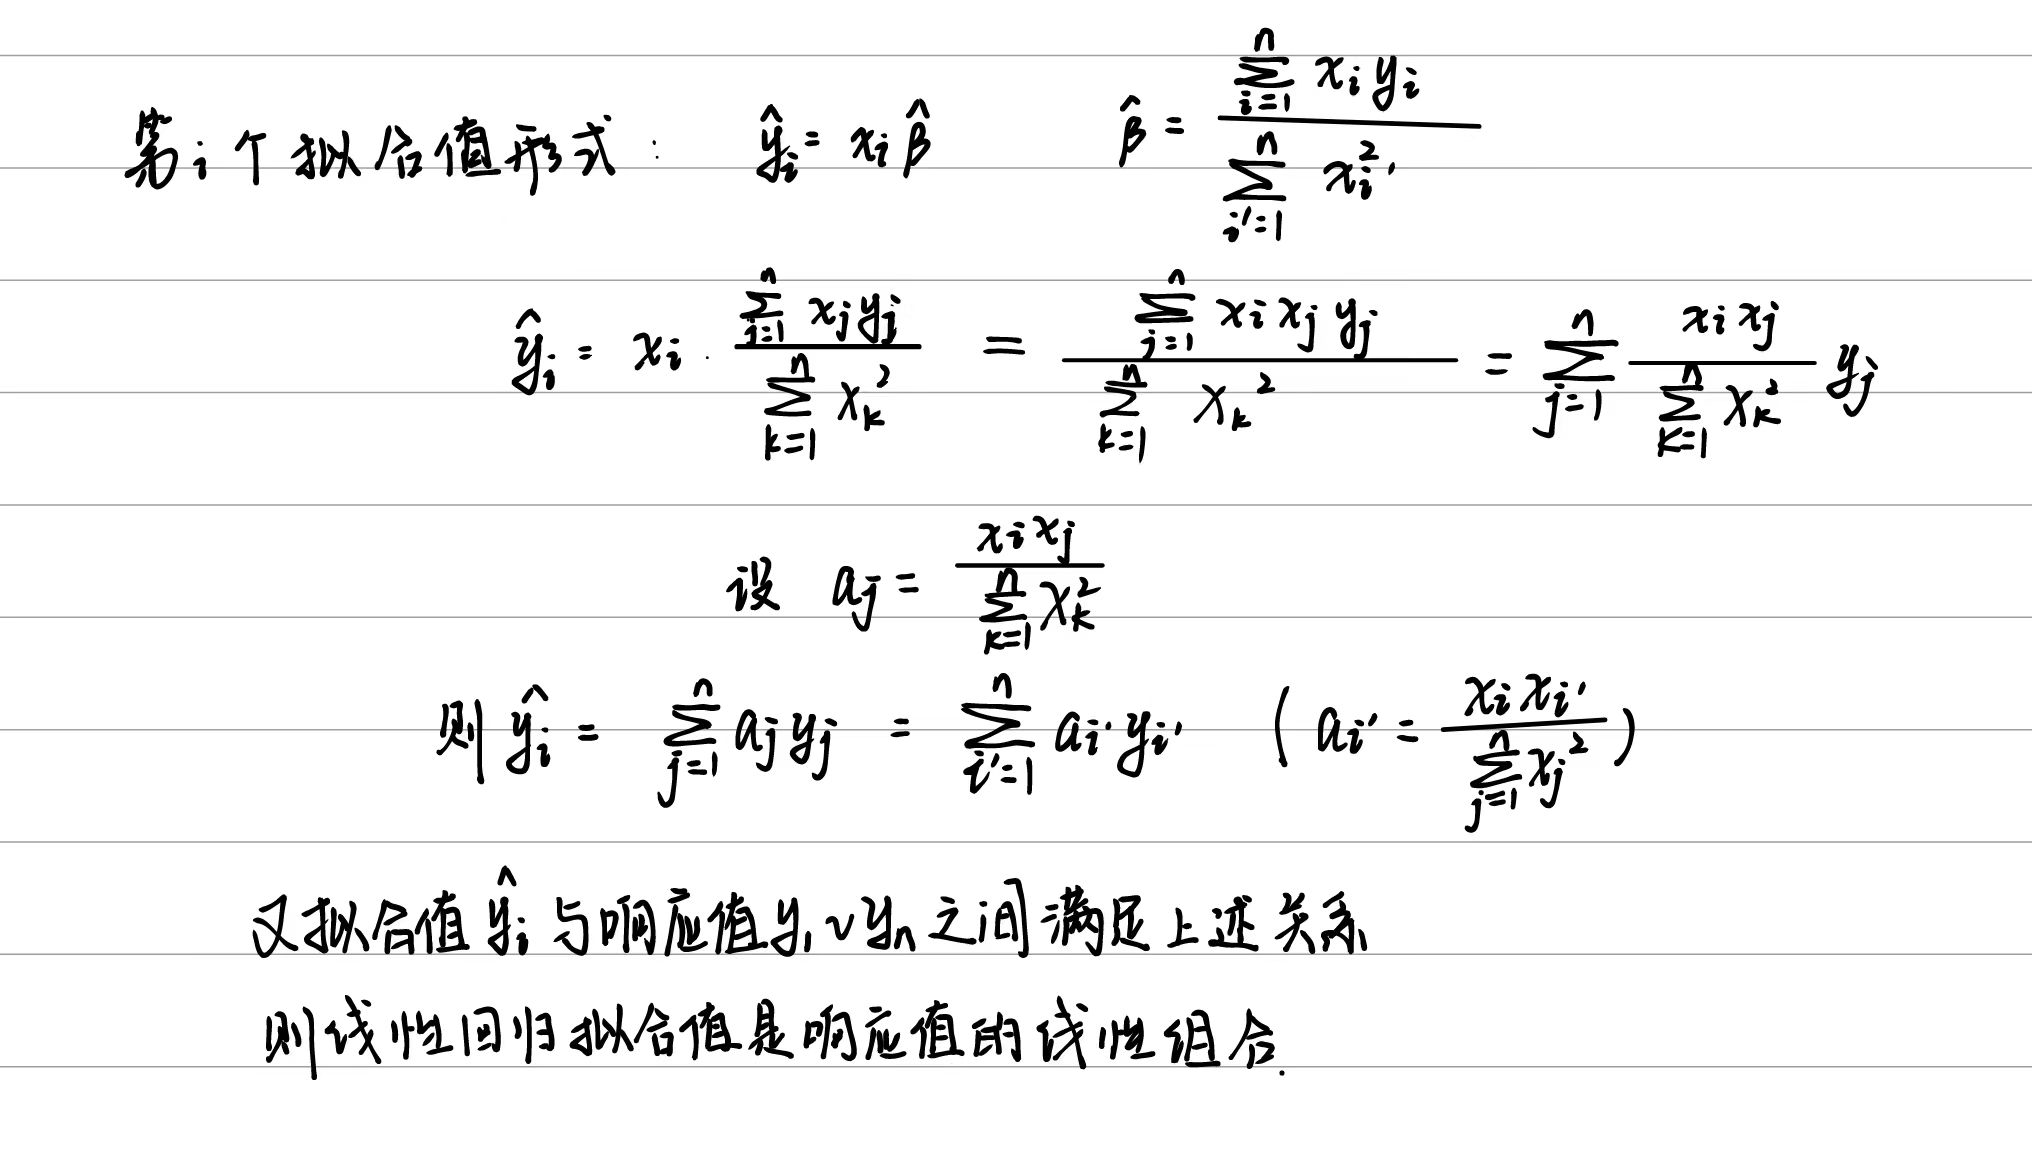 第i个拟合值形式: ŷᵢ = xᵢβ̂  β̂ = \frac{\sum_{i=1}^{n} x_i y_i}{\sum_{i'=1}^{n} x_{i'}^2}
ŷᵢ = xᵢ · \frac{\sum_{j=1}^{n} x_j y_j}{\sum_{k=1}^{n} x_k^2} = \frac{\sum_{j=1}^{n} x_i x_j y_j}{\sum_{k=1}^{n} x_k^2} = \sum_{j=1}^{n} \frac{x_i x_j}{\sum_{k=1}^{n} x_k^2} y_j
设 a_j = \frac{x_i x_j}{\sum_{k=1}^{n} x_k^2}
则 ŷᵢ = \sum_{j=1}^{n} a_j y_j = \sum_{i'=1}^{n} a_{i'} y_{i'} (a_{i'} = \frac{x_i x_{i'}}{\sum_{j=1}^{n} x_j^2})
又拟合值 ŷᵢ 与响应值 y₁~yₙ 之间满足上述关系
则线性回归拟合值是响应值的线性组合.